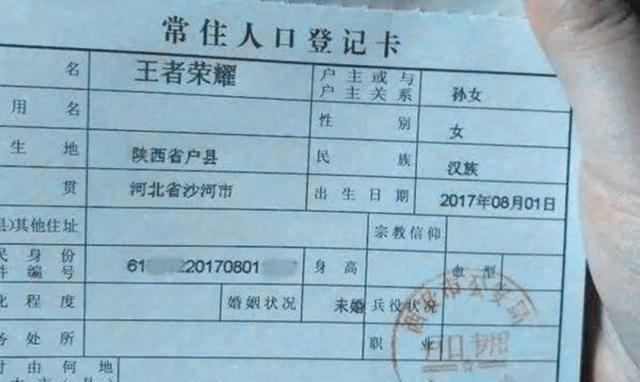 常住人口登记卡
名 王者荣耀 户主或与户主关系 孙女
用名 性别 女
生地 陕西省户县 民族 汉族
贯 河北省沙河市 出生日期 2017年08月01日
县)其他住址 宗教信仰
民身份件编号 61 220170801 身高 血型
化程度 婚姻状况 未婚 兵役状况
务处所 职业
时由何地